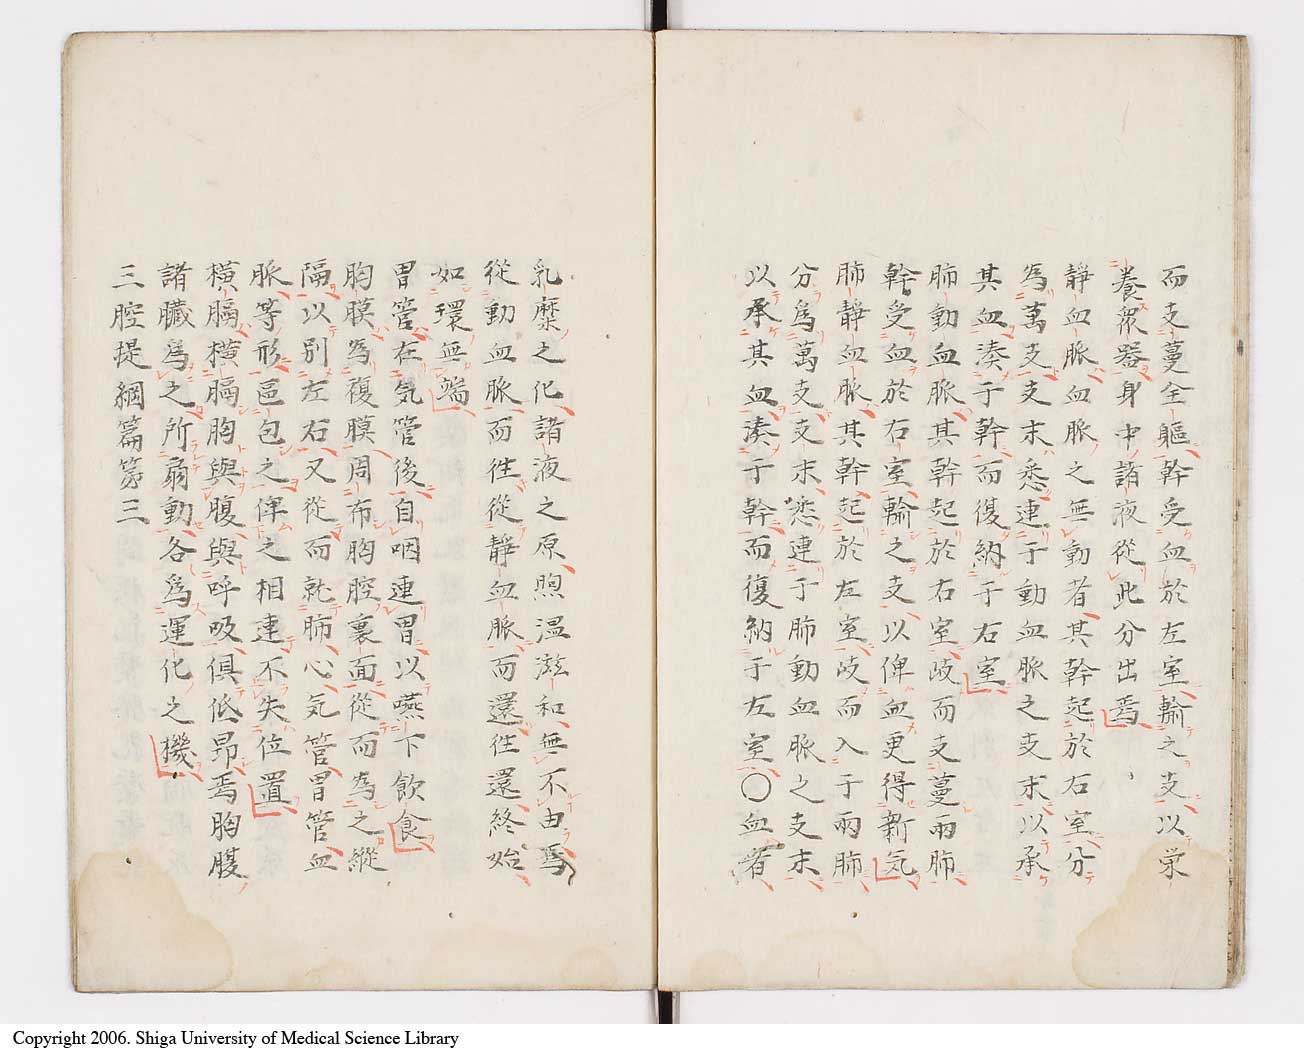 而支蔓全軀幹受血於左室輸之支以栄
養衆器身中諸液從此分出焉
静血脈血脈之無動者其幹起於右室分
為萬支支末悉連于動血脈之支末以承
其血湊于幹而復納于右室
肺動血脈其幹起於右室岐而支蔓両肺
幹受血於右室輸之支以俾血更得新気
肺静血脈其幹起於左室岐而入于両肺
分爲萬支支末悉連于肺動血脈之支末
以承其血湊于幹而復納于左室〇血者
乳糜之化諸液之原煦温滋和無不由焉
從動血脈而往從静血脈而還往還終始
如環無端
胃管在気管後自咽連胃以嚥下飲食
胸膜為複膜周布胸腔裏面從而為之縱
隔以別左右又從而就肺心気管胃管血
脈等形區包之俾之相連不失位置
横膈横膈胸與腹與呼吸俱低昂焉胸腹
諸臓為之所扇動各爲運化之機
三腔提綱篇第三
Copyright 2006. Shiga University of Medical Science Library